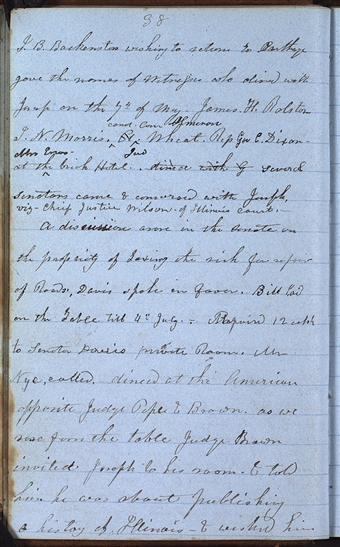 38
J. B. Backenstos wishing to return to Carthage
gave the names of witnesses who dined with
Jos. on the 7th of May. James. H. Ralston
cand. Cur.
J. N. Morris, Wheat. Rep Geo C. Dixon.
Mrs Jud
at the brick Hotel. dined with G several
senators came & conversed with Joseph,
viz- Chief Justice Wilson. of Illinois Court.
A discussion arose in the senate on
the propriety of Taxing the rich for repair
of Roads, Davis spoke in favor. Bill laid
on the Table till 4th July. - Repaired 12 oclk
to Senator Davies private Room. Mr
Nye, called. dined at the American
opposite Judge Pope & Brown. as we
rose from the table Judge Brown
invited Joseph to his room. & told
him he was about publishing
a history of. Illinois - & wished him